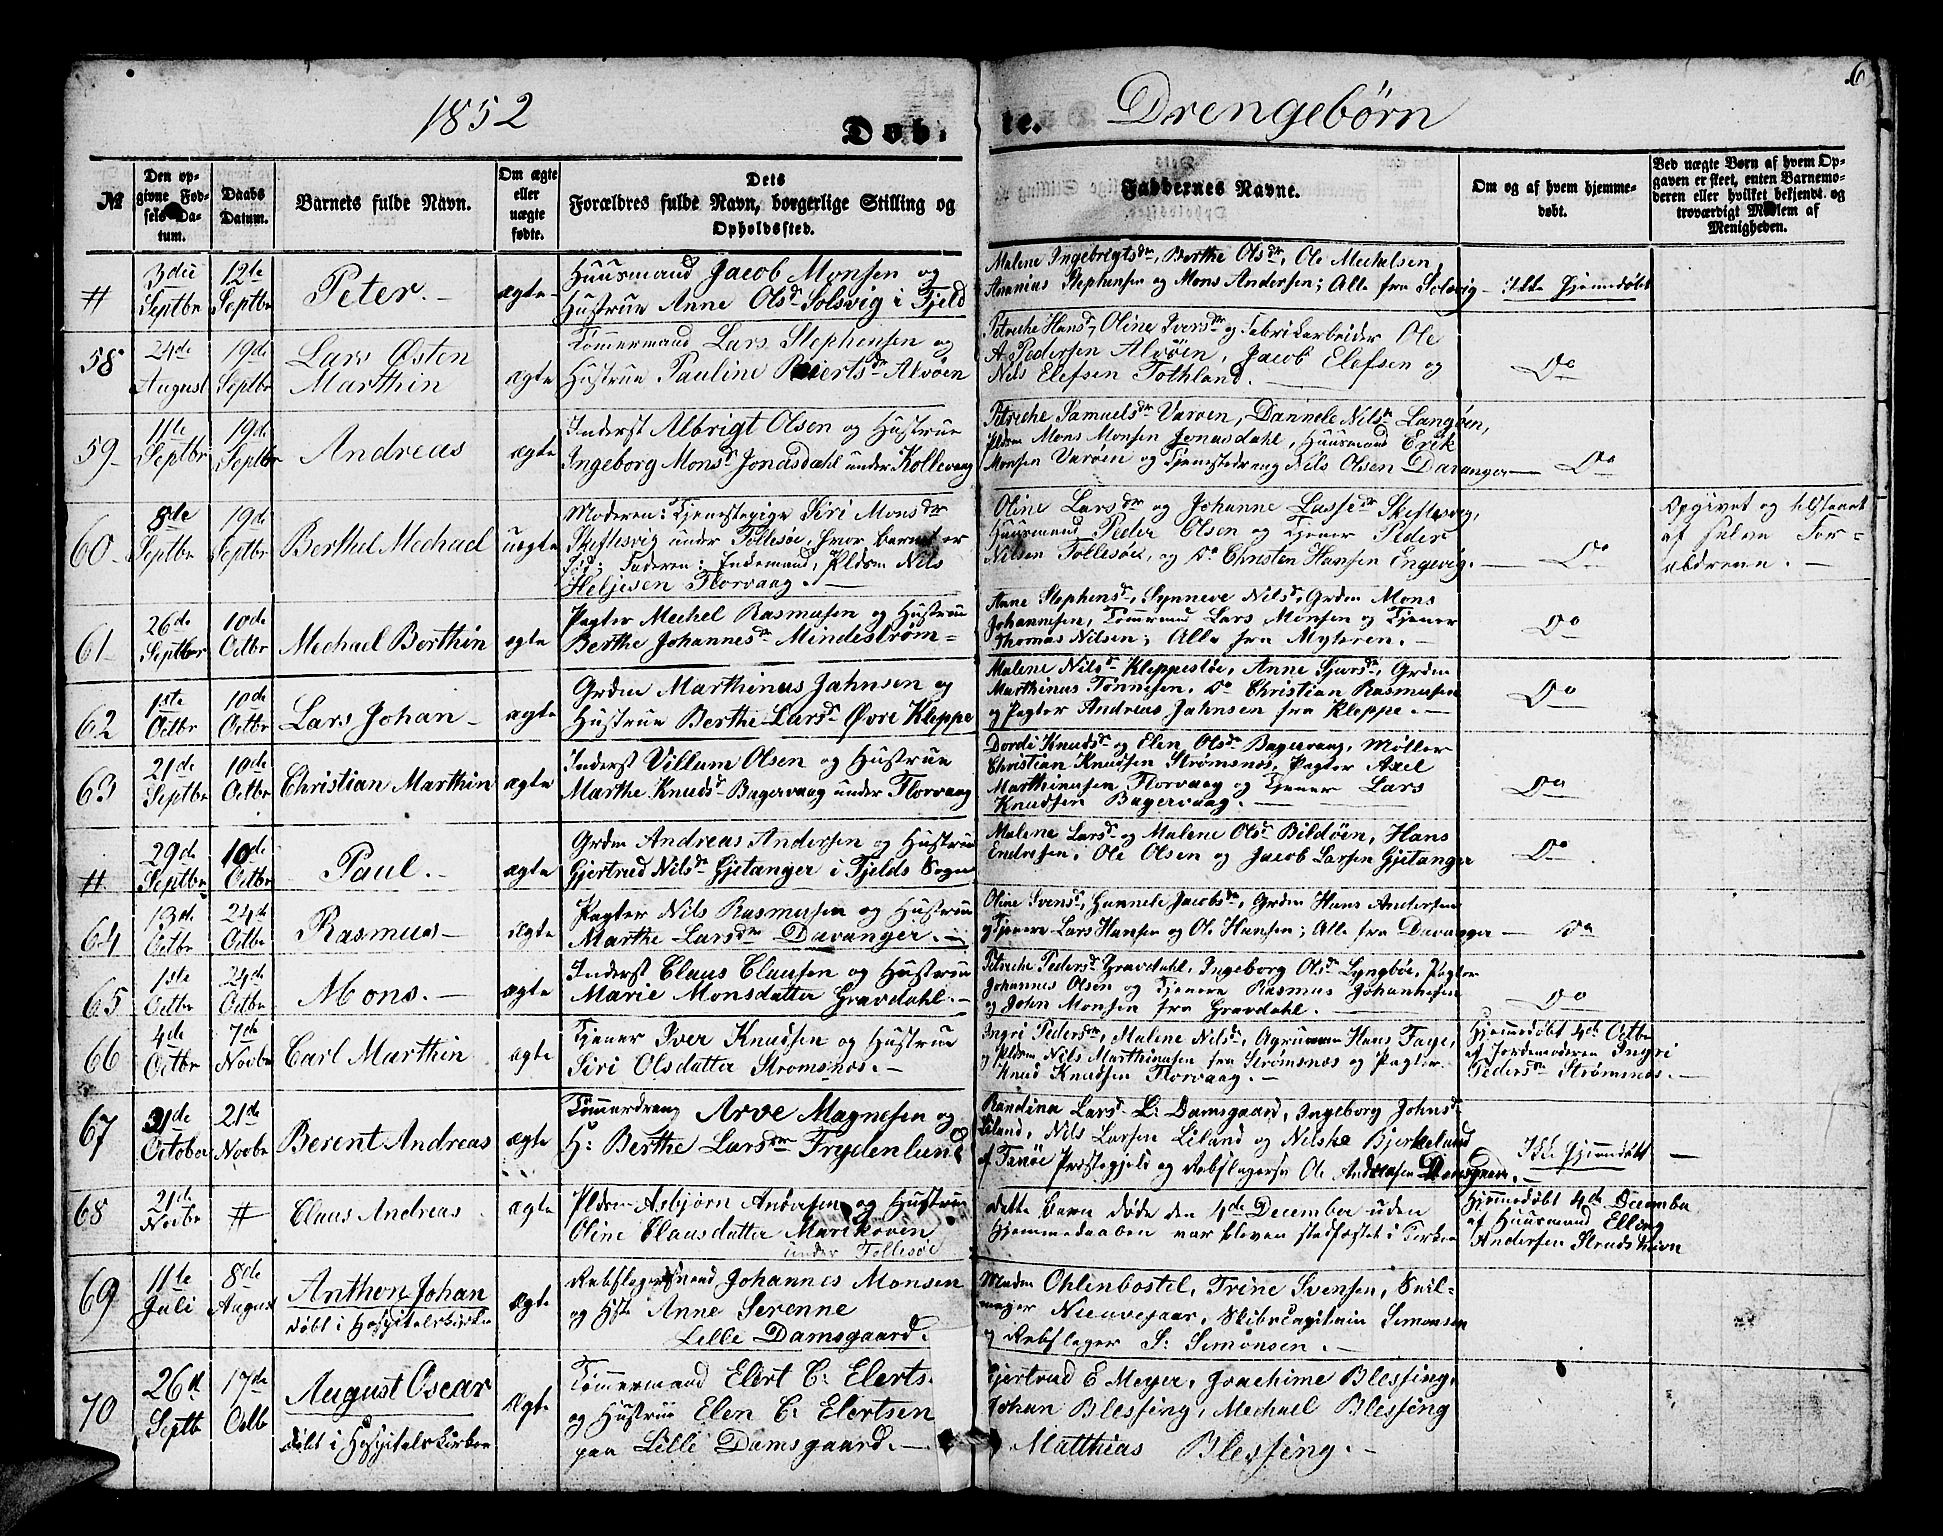 6
1852 Døb- te. Drengebørn
№ | Den opgivne Fødsels Datum. | Daabs Datum. | Barnets fulde Navn. | Om ægte eller uægte fødte. | Dets Forældres fulde Navn, borgerlige Stilling og Opholdssted. | Faddernes Navne. | Om og af hvem hjemmedøbt. | Ved uægte Børn af hvem Opgaven er skeet, enten Barnemoderen eller hvilket bekjendt og troværdigt Medlem af Menigheden.
# | 3die Septbr | 12te Septbr | Peter. | ægte | Huusmand Jacob Monsen og
Hustrue Anne Olsdr Solsvig i Fjeld | Malene Ingebrigtsdr, Berthe Olsdr, Ole Mechelsen,
Ananias Stephensen og Mons Andersen; Alle fra Solsvig | Ikke hjemdøbt
58 | 24de August | 19de Septbr | Lars Østen
Marthin | ægte | Tømmermand Lars Stephensen og
Hustrue Pauline Reiertsdr Alvøen | Petriche Hansdr, Oline Iversdr og Fabrikarbeider Ole
A. Pedersen Alvøen, Jacob Elefsen og
Nils Elefsen Tothland. | Do
59 | 11te Septbr | 19de Septbr | Andreas | ægte | Inderst Albrigt Olsen og Hustrue
Ingeborg Monsdr Jonasdahl under Kollevaag | Petriche Samuelsdr Varøen, Dannele Nilsdr Langøen,
Pldsm Mons Monsen Jonasdahl, Huusmand Erik
Monsen Varøen og Tjenestedreng Nils Olsen Davanger | Do
60 | 8de Septbr | 19de Septbr | Berthel Mechael | uægte | Moderen: Tjenestepige Siri Monsdr
Skiftesvig under Follesøe, hvor barnet er
fød; Faderen: Indemand, Pldsm Nils
Heljesen Florvaag. | Oline Larsdr og Johanne Lassedr Skiftesvig,
Huusmand Peder Olsen og Tjener Peder
Nilsen Follesøe, og Do Christen Hansen Engevig. | Do | Opgivet og tilstaaet
af selve For-
ældrene.
61 | 26de Septbr | 10de Octbr | Mechael Berthin | ægte | Pagter Mechel Rasmusen og Hustrue
Berthe Johannesdr Mindestrøm | Anne Stephensdr, Synneve Nilsdr, Grdm Mons
Johannesen, Tømrmd Lars Monsen og Tjener
Thomas Nilsen; Alle fra Myteren. | Do
62 | 1ste Octbr | 10de Octbr | Lars Johan | ægte | Grdm Marthinus Jahnsen og
Hustrue Berthe Larsdr Øvre Kleppe | Malene Nilsdr Kleppestøe, Anne Sjursdr, Grdm
Marthinus Tønnesen, Do Christian Rasmusen
og Pagter Andreas Jahnsen fra Kleppe. | Do
63 | 21de Septbr | 10de Octbr | Christian Marthin | ægte | Inderst Villum Olsen og Hustrue
Marthe Knudsdr Bagervaag under Florvaag | Dordi Knudsdr og Elen Olsdr Bagervaag, Møller
Christian Knudsen Strømsnæs, Pagter Axel
Marthinusen Florvaag og Tjener Lars
Knudsen Bagervaag. | Do
# | 29de Septbr | 10de Octbr | Paul. | ægte | Grdm Andreas Andersen og Hustrue
Gjertrud Nilsdr Gjetanger i Fjelds Sogn | Malene Larsdr og Malene Olsdr Bildøen, Hans
Endresen, Ole Olsen og Jacob Larsen Gjetanger | Do
64 | 13de Octbr | 24de Octbr | Rasmus | ægte | Pagter Nils Rasmusen og Hustrue
Marthe Larsdr Davanger. | Oline Svensdr, Hannele Jacobsdr, Grdm Hans Andersen
Tjenere Lars Hansen og Ole Hansen; Alle fra Davanger | Do
65 | 1ste Octbr | 24de Octbr | Mons. | ægte | Inderst Claus Clausen og Hustrue
Marie Monsdatter Gravdahl. | Petriche Pedersdr Gravdahl, Ingeborg Olsdr Lyngbøe, Pagter
Johannes Olsen og Tjenere Rasmus Johannesen
og John Monsen fra Gravdahl. | Do
66 | 4de Octbr | 7de Novbr | Carl Marthin | ægte | Tjener Iver Knudsen og Hustrue
Siri Olsdatter Strømsnæs. | Ingri Pedersdr, Malene Nilsdr, Hans Faye,
og Pldsm Nils Marthinusen fra Strømsnæs og Pagter
Knud Knudsen Florvaag. | Hjemmedøbt 4de Octbr
af Jordemoderen Ingri
Pedersdr Strømsnæs.
67 | 31de October | 21de Novbr | Berent Andreas | ægte | Tømmerdreng Arve Magnesen og
H: Berthe Larsdr Frydenlund | Randina Larsdr L: Damsgaard, Ingeborg Johnsdr
Liland, Nils Larsen Liland og Nilshe Bjerkelund
af Fanøe Præstegjeld og Rebslagersv Ole Andersen Damsgaard. | Ikke hjemdøbt
68 | 21de Novbr | # | Claus Andreas | ægte | Pldsm Asbjørn Andersen og Hustrue
Oline Clausdatter Marikoven
under Follesøe | Dette barn døde den 4de December uden
Hjemmedaaben var bleven stadfæstet i Kirken | Hjemmedøbt 4de December
af Huusmand Elling
Andersen Strudshavn
69 | 11te Juli | 8de August | Anthon Johan
døbt i Hospitalskirken | ægte | Rebslagersvend Johannes Monsen
og Hste Anne Serenne
Lille Damsgaard. | Madm Ohlenbostel, Trine Svensen, Seil-
mager Nieuwejaar, Skibscapitain Simonsen
og Rebslager S: Simonsen.
70 | 26d Septb | 17de Octb | August Oscar
døbt i Hospitalskirken | ægte | Tømmermand Elert C: Elerts.
og Hustrue Elen C: Elertsen
paa Lille Damsgaard. | Gjertrud E Meyer, Joachime Blessing,
Johan Blessing, Mechael Blessing
Matthias Blessing.